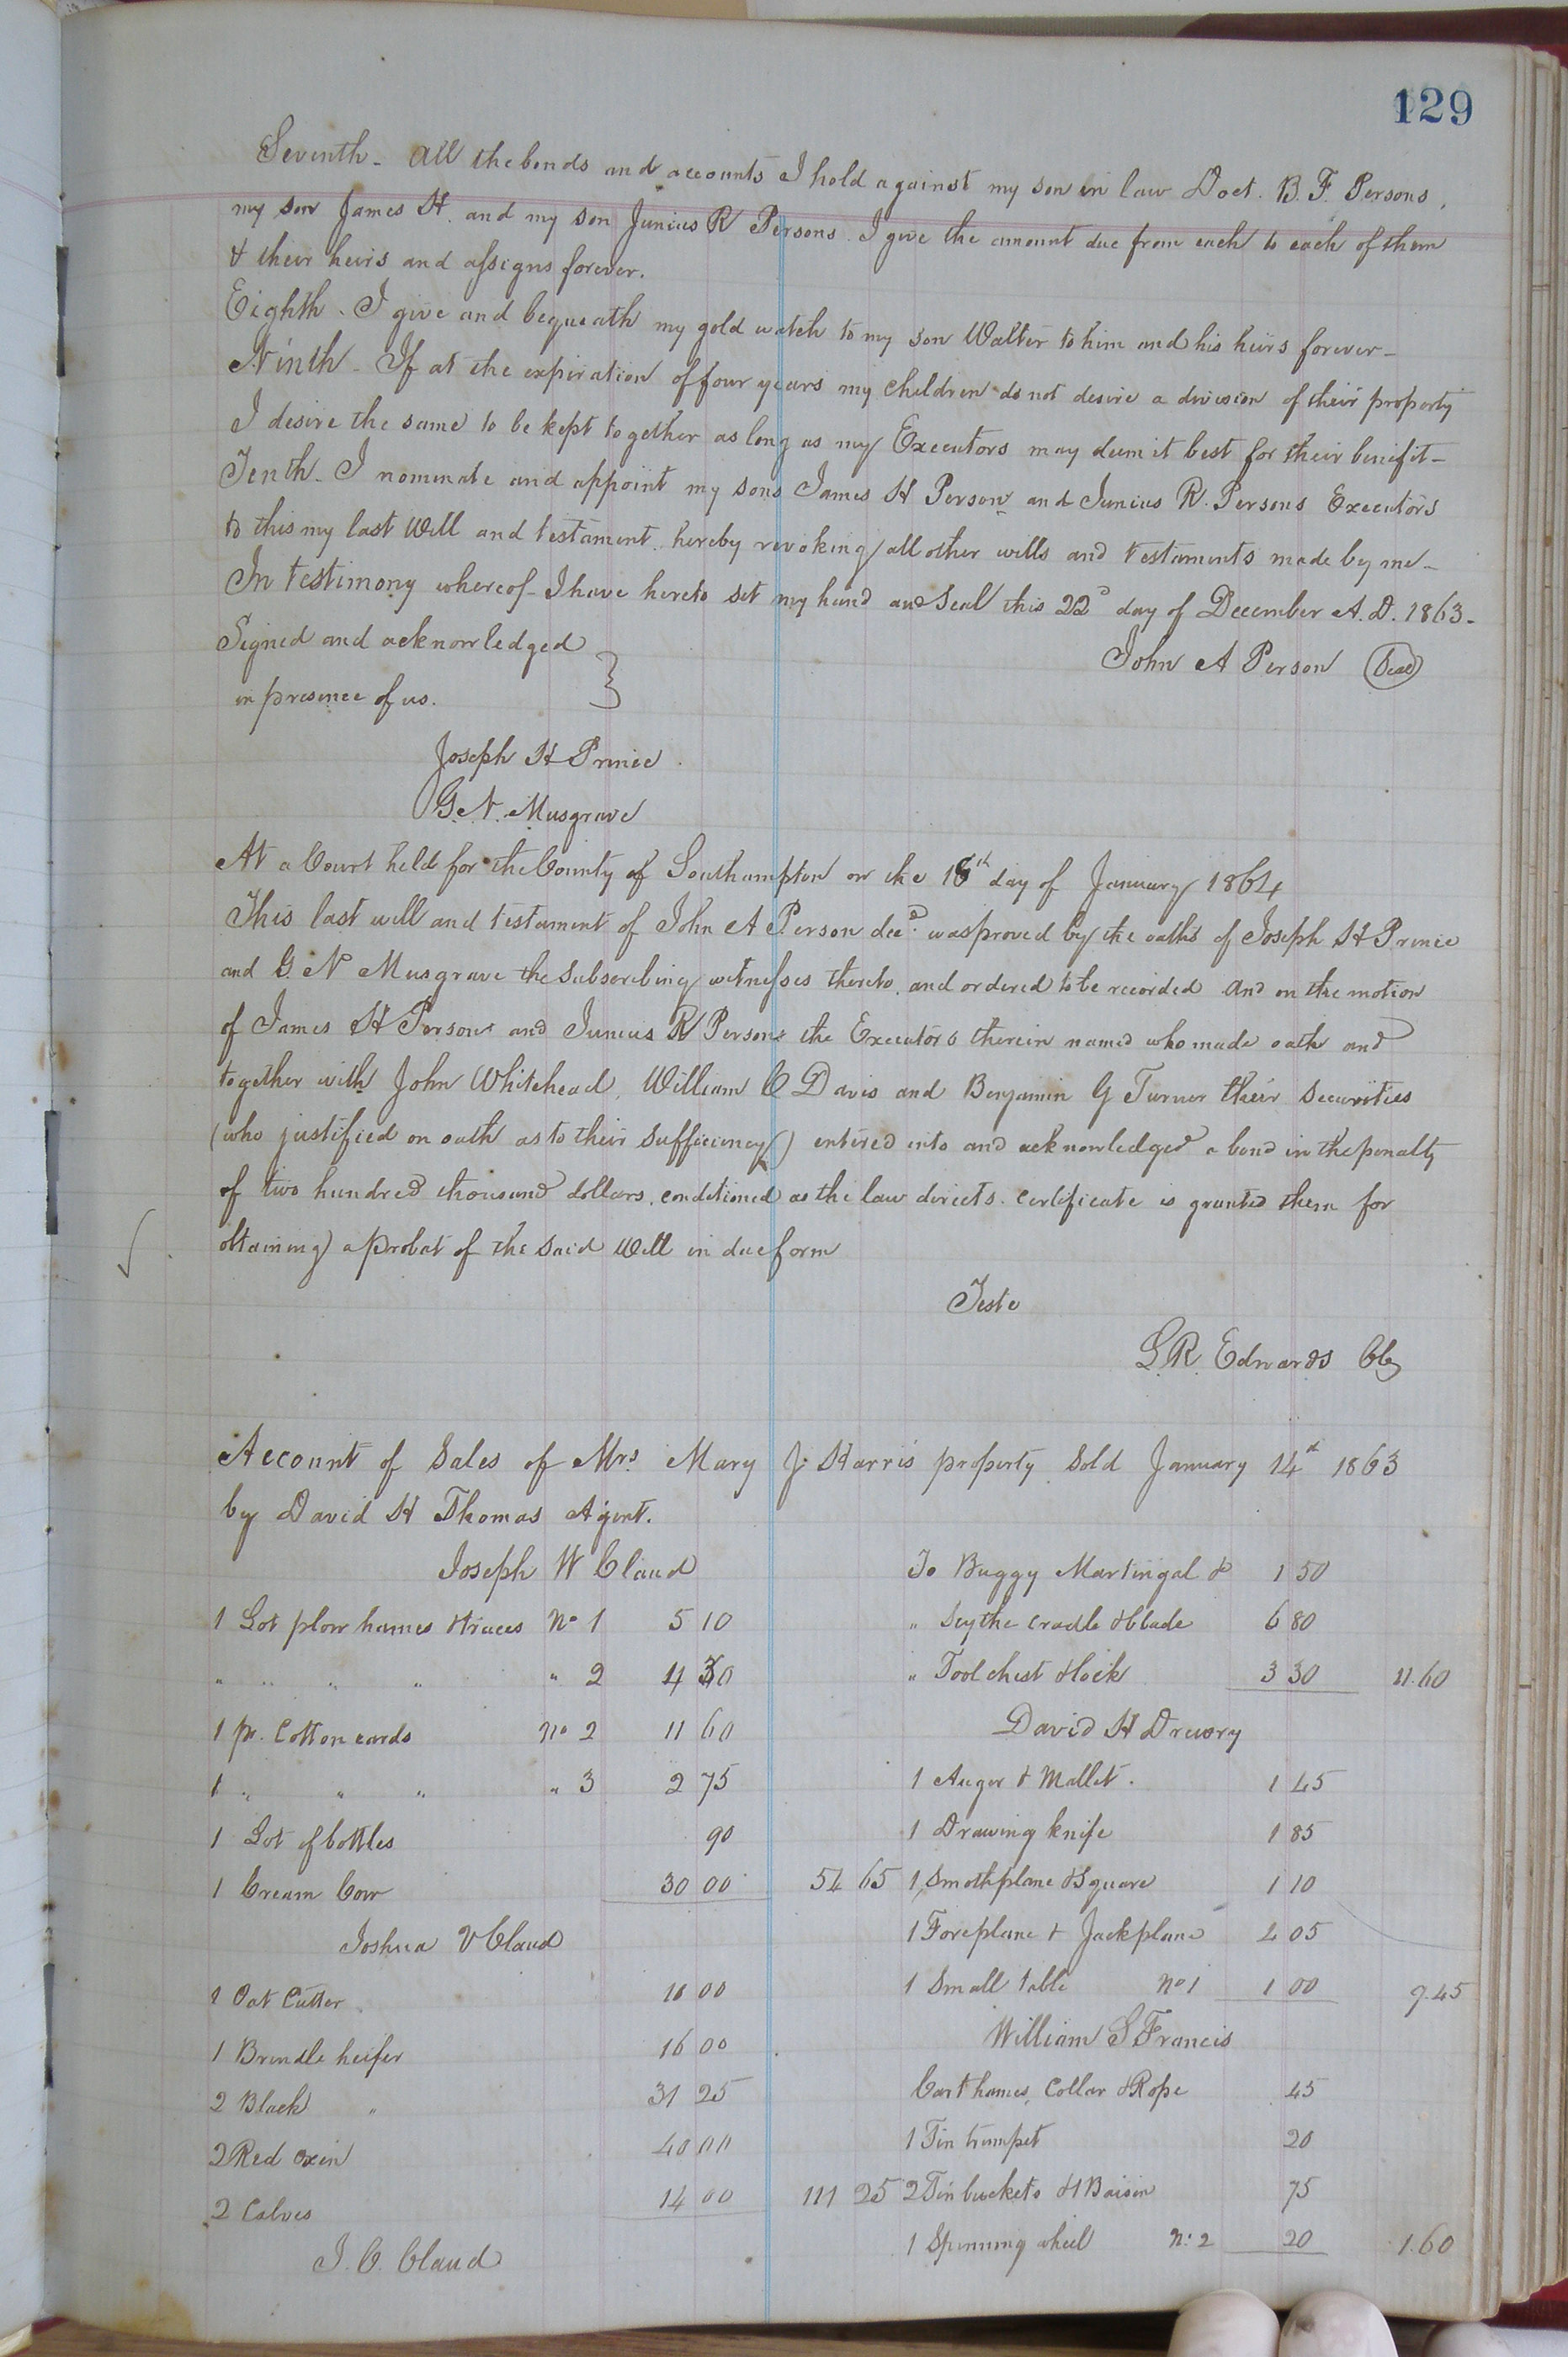 129
Seventh - All the bonds and accounts I hold against my son in law Doct. B. F. Persons,
my son James H. and my son Junius R Persons. I give the amount due from each to each of them
& their heirs and assigns forever.
Eighth - I give and bequeath my gold watch to my son Walter to him and his heirs forever -
Ninth - If at the expiration of four years my children do not desire a division of their property
I desire the same to be kept together as long as my Executors may deem it best for their benifit -
Tenth - I nominate and appoint my sons James H Person and Junius R. Persons Executors
to this my last Will and testament. hereby revoking all other wills and testaments made by me -
In testimony whereof - I have hereto set my hand and seal this 22d day of December A. D. 1863 -
Signed and acknowledged } John A Person (Seal)
in presence of us.
Joseph H Prince
G. N. Musgrave
At a Court held for the County of Southampton on the 18th day of January 1864
This last will and testament of John A Person decd. was proved by the oaths of Joseph H Prince
and G. N Musgrave the subscribing witnesses thereto. and ordered to be recorded And on the motion
of James H Persons and Junius R Persons the Executors therein named who made oath and
together with John Whitehead, William C Davis and Benjamin G Turner their securities
(who justified on oath as to their sufficiency) entered into and acknowledged a bond in the penalty
of two hundred thousand dollars. conditioned as the law directs. certificate is granted them for
obtaining a probat of the said Will in due form
Teste
L. R. Edwards Clk
Account of Sales of Mrs Mary J. Harris property sold January 14th 1863
by David H Thomas Agent.
Joseph W Claud
1 Lot plow hames & traces No 1 5 10
" " " " " 2 4 30
1 pr. Cotton cards No 2 11 60
1 " " " " 3 2 75
1 Lot of bottles 90
1 Cream Cow 30 00 54 65
Joshua V Claud
1 Oat Cutter 10 00
1 Brindle heifer 16 00
2 Black " 31 25
2 Red oxen 40 00
2 Calves 14 00 111 25
J. C. Claud
To Buggy Martingal & 1 50
" Scythe cradle & blade 6 80
" Tool chest & lock 3 30 11.60
David H Drewry
1 Auger & Mallet. 1 45
1 Drawing knife 1 85
1 Smothplane & Square 1 10
1 Foreplane & Jackplane 4 05
1 Small table No 1 1 00 9.45
William S Francis
Cart hames, Collar & Rope 45
1 Tin trumpet 20
2 Tin buckets & 1 Baisin 75
1 Spinning wheel No. 2 20 1.60